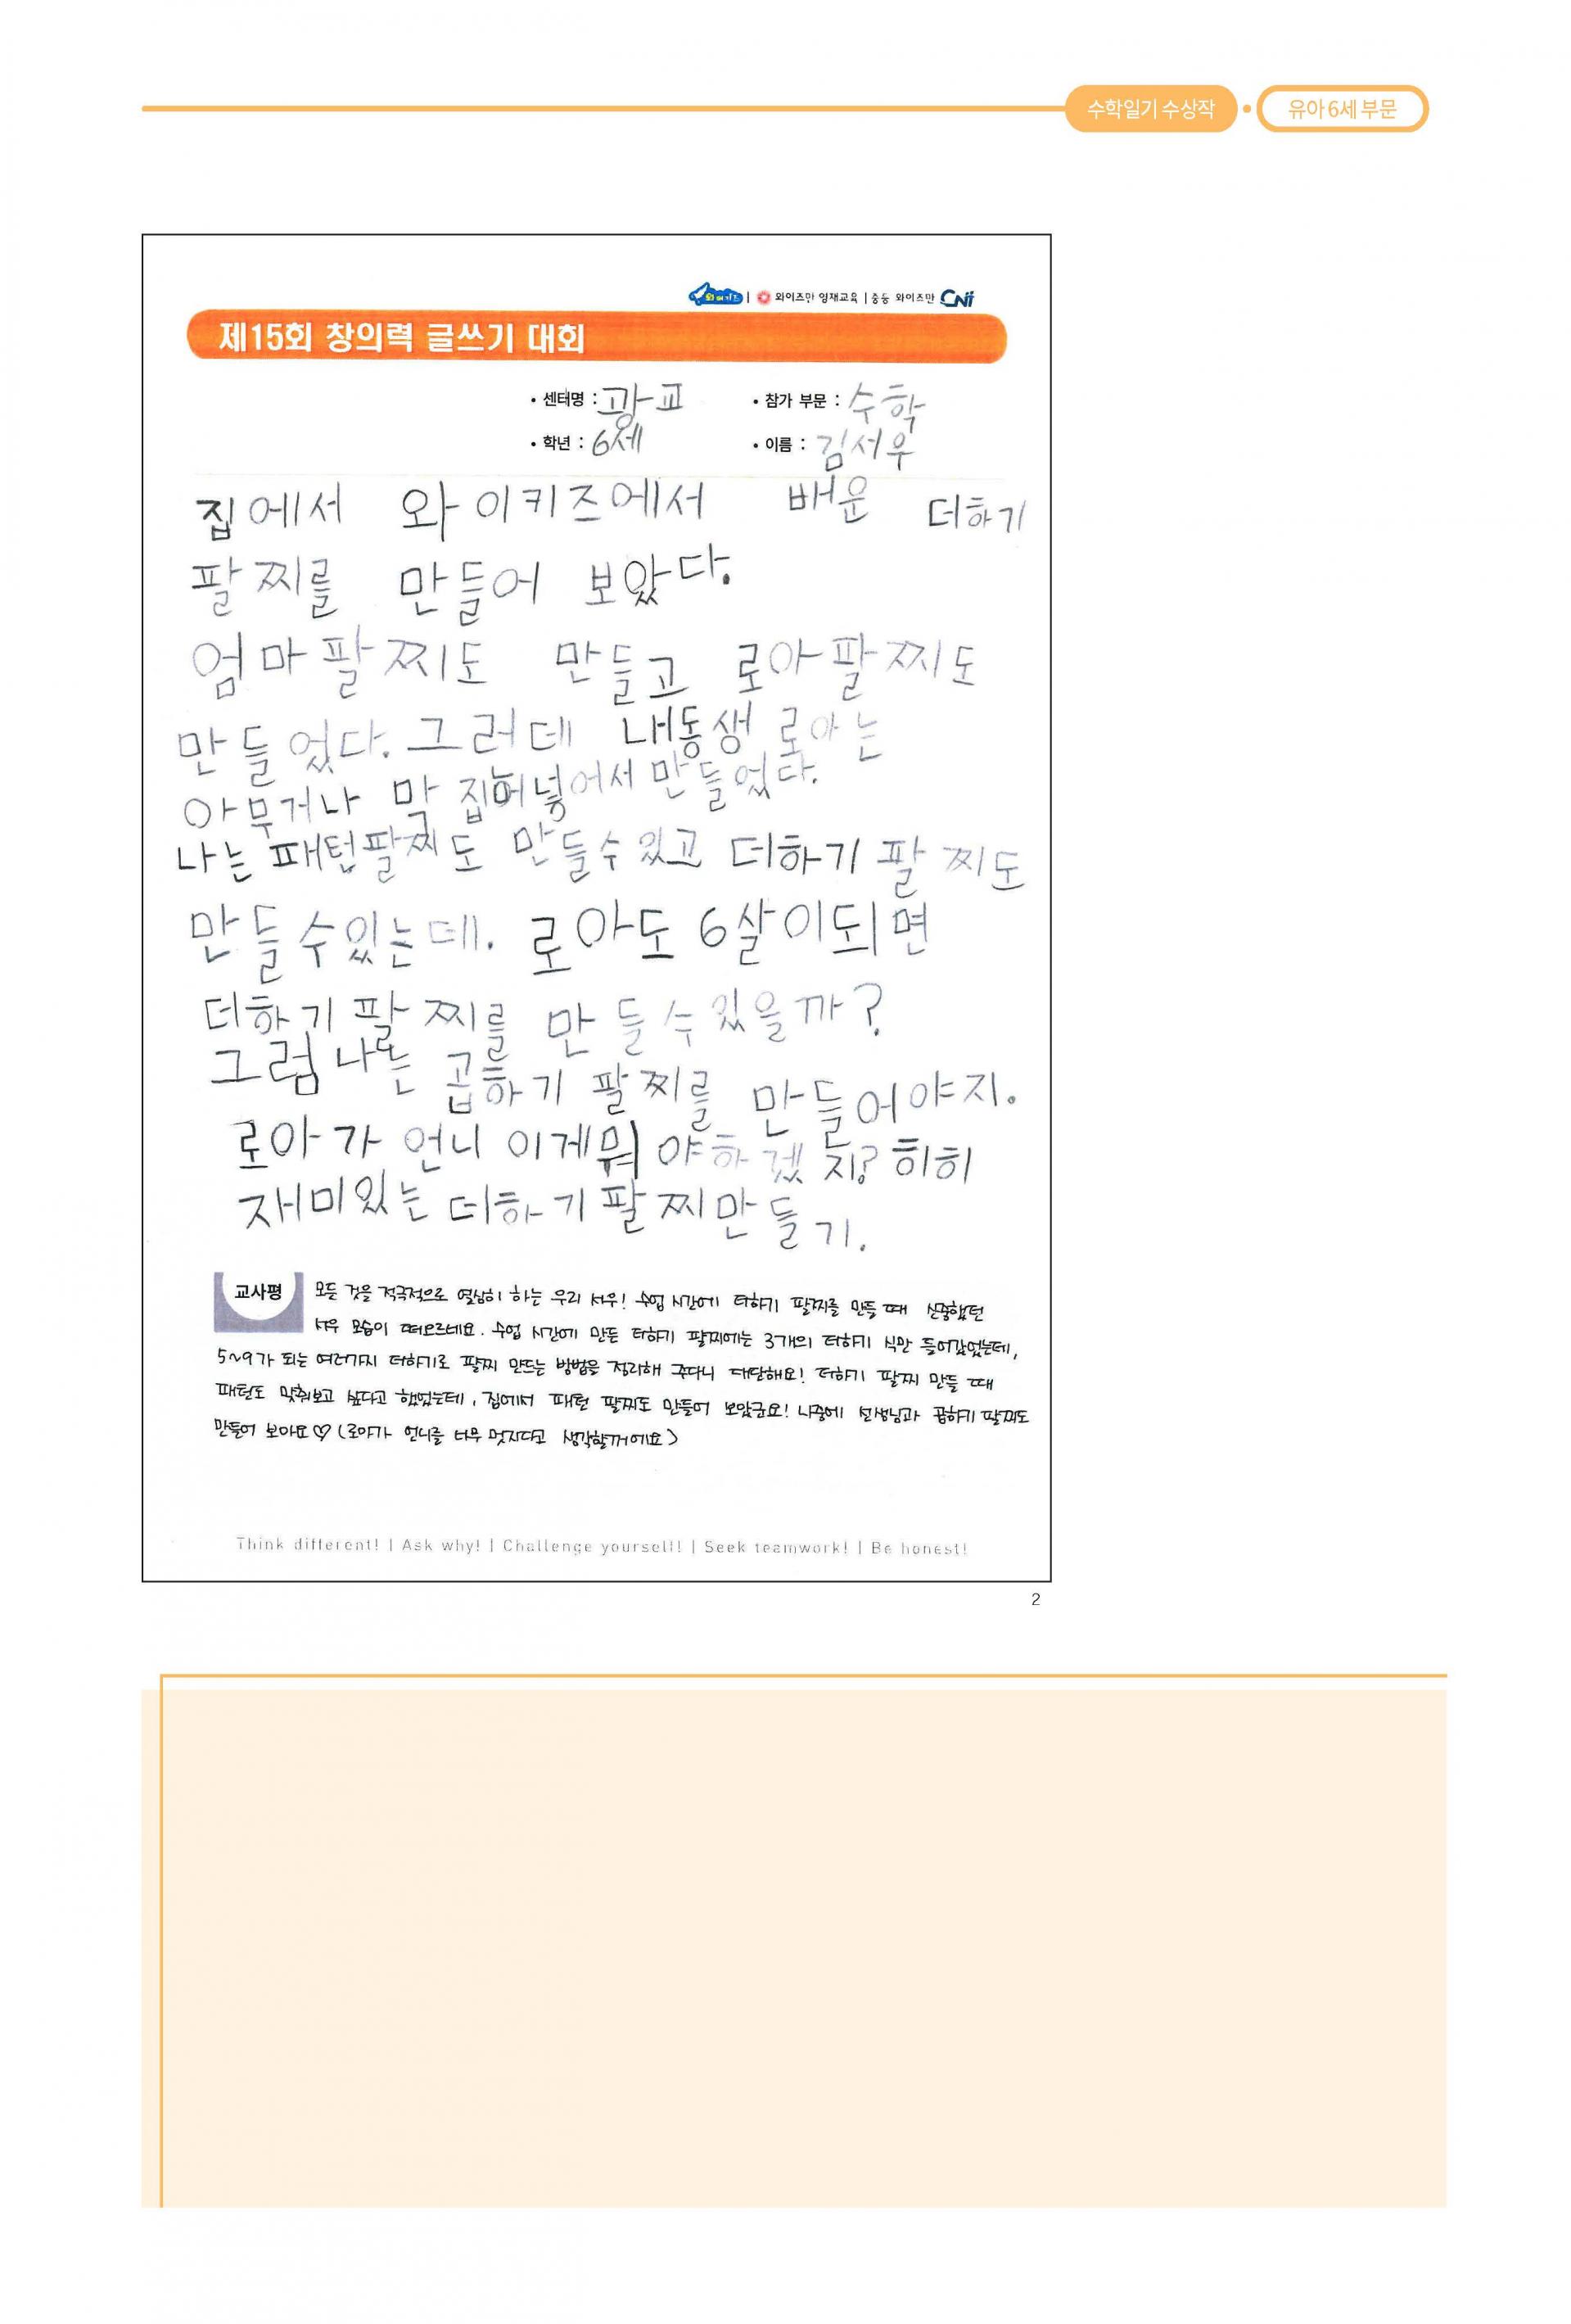 수학일기 수상작 • 유아 6세 부문
와이키즈 | 와이즈만 영재교육 | 중등 와이즈만 CNI
제15회 창의력 글쓰기 대회
• 센터명 : 광교 • 참가 부문 : 수학
• 학년 : 6세 • 이름 : 김서우
집에서 와이키즈에서 배운 더하기
팔찌를 만들어 보았다.
엄마팔찌도 만들고 로아팔찌도
만들었다. 그러데 내동생 로아는
아무거나 막 집어넣어서 만들었다.
나는 패턴팔찌도 만들수있고 더하기 팔찌도
만들수있는데. 로아도 6살이되면
더하기 팔찌를 만들수있을까?
그럼나는 곱하기 팔찌를 만들어야지.
로아가 언니 이게뭐야하겠지? 히히
재미있는 더하기팔찌만들기.
교사평 모든 것을 적극적으로 열심히 하는 우리 서우! 수업 시간에 더하기 팔찌를 만들 때 신중했던
서우 모습이 떠오르네요. 수업 시간에 만든 더하기 팔찌에는 3개의 더하기 식만 들어갔었는데,
5~9가 되는 여러가지 더하기로 팔찌 만드는 방법을 정리해 주다니 대단해요! 더하기 팔찌 만들 때
패턴도 맞춰보고 싶다고 했었는데, 집에서 패턴 팔찌도 만들어 보았군요! 나중에 선생님과 곱하기 팔찌도
만들어 보아요♡ (로아가 언니를 너무 멋지다고 생각할꺼에요)
Think different! | Ask why! | Challenge yourself! | Seek teamwork! | Be honest!
2